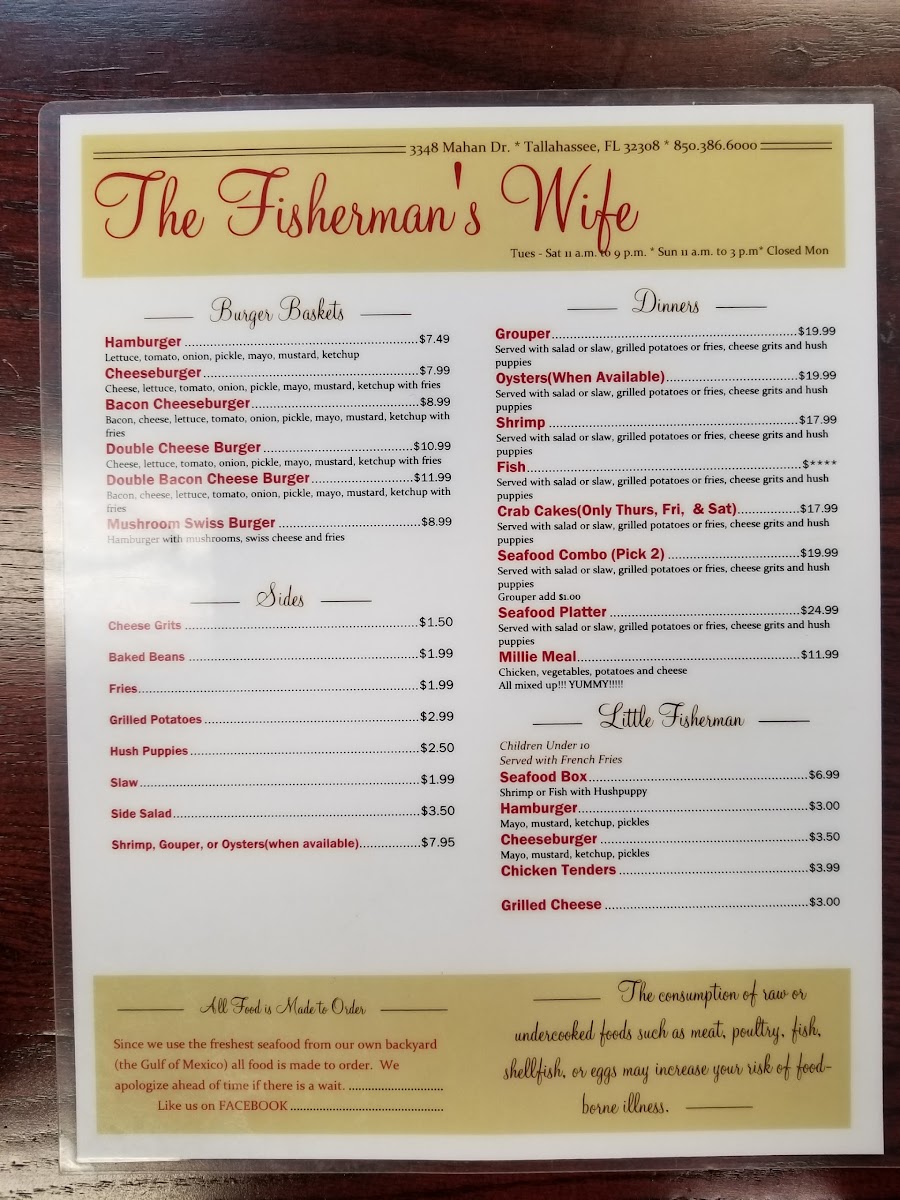 3348 Mahan Dr. * Tallahassee, FL 32308 * 850.386.6000
The Fisherman's Wife
Tues - Sat 11 a.m. to 9 p.m. * Sun 11 a.m. to 3 p.m* Closed Mon
Burger Baskets
Hamburger $7.49
Lettuce, tomato, onion, pickle, mayo, mustard, ketchup
Cheeseburger $7.99
Cheese, lettuce, tomato, onion, pickle, mayo, mustard, ketchup with fries
Bacon Cheeseburger $8.99
Bacon, cheese, lettuce, tomato, onion, pickle, mayo, mustard, ketchup with
fries
Double Cheese Burger $10.99
Cheese, lettuce, tomato, onion, pickle, mayo, mustard, ketchup with fries
Double Bacon Cheese Burger $11.99
Bacon, cheese, lettuce, tomato, onion, pickle, mayo, mustard, ketchup with
fries
Mushroom Swiss Burger $8.99
Hamburger with mushrooms, swiss cheese and fries
Sides
Cheese Grits $1.50
Baked Beans $1.99
Fries $1.99
Grilled Potatoes $2.99
Hush Puppies $2.50
Slaw $1.99
Side Salad $3.50
Shrimp, Gouper, or Oysters(when available) $7.95
Dinners
Grouper $19.99
Served with salad or slaw, grilled potatoes or fries, cheese grits and hush
puppies
Oysters(When Available) $19.99
Served with salad or slaw, grilled potatoes or fries, cheese grits and hush
puppies
Shrimp $17.99
Served with salad or slaw, grilled potatoes or fries, cheese grits and hush
puppies
Fish $****
Served with salad or slaw, grilled potatoes or fries, cheese grits and hush
puppies
Crab Cakes(Only Thurs, Fri, & Sat) $17.99
Served with salad or slaw, grilled potatoes or fries, cheese grits and hush
puppies
Seafood Combo (Pick 2) $19.99
Served with salad or slaw, grilled potatoes or fries, cheese grits and hush
puppies
Grouper add $1.00
Seafood Platter $24.99
Served with salad or slaw, grilled potatoes or fries, cheese grits and hush
puppies
Millie Meal $11.99
Chicken, vegetables, potatoes and cheese
All mixed up!!! YUMMY!!!!!
Little Fisherman
Children Under 10
Served with French Fries
Seafood Box $6.99
Shrimp or Fish with Hushpuppy
Hamburger $3.00
Mayo, mustard, ketchup, pickles
Cheeseburger $3.50
Mayo, mustard, ketchup, pickles
Chicken Tenders $3.99
Grilled Cheese $3.00
All Food is Made to Order
Since we use the freshest seafood from our own backyard
(the Gulf of Mexico) all food is made to order. We
apologize ahead of time if there is a wait.
Like us on FACEBOOK
The consumption of raw or
undercooked foods such as meat, poultry, fish,
shellfish, or eggs may increase your risk of food-
borne illness.